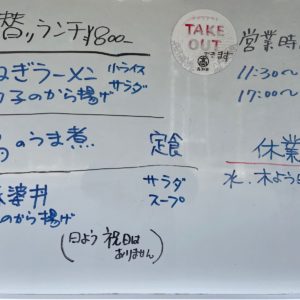 替りランチ¥800-
ねぎラーメン 小ライス サラダ
子のから揚げ
のうま煮 定食
サラダ
スープ
のから揚げ
(日よう 祝日は
ありません)
TAKE
OUT
できます
営業時
11:30〜
17:00〜
休業
水、木よう